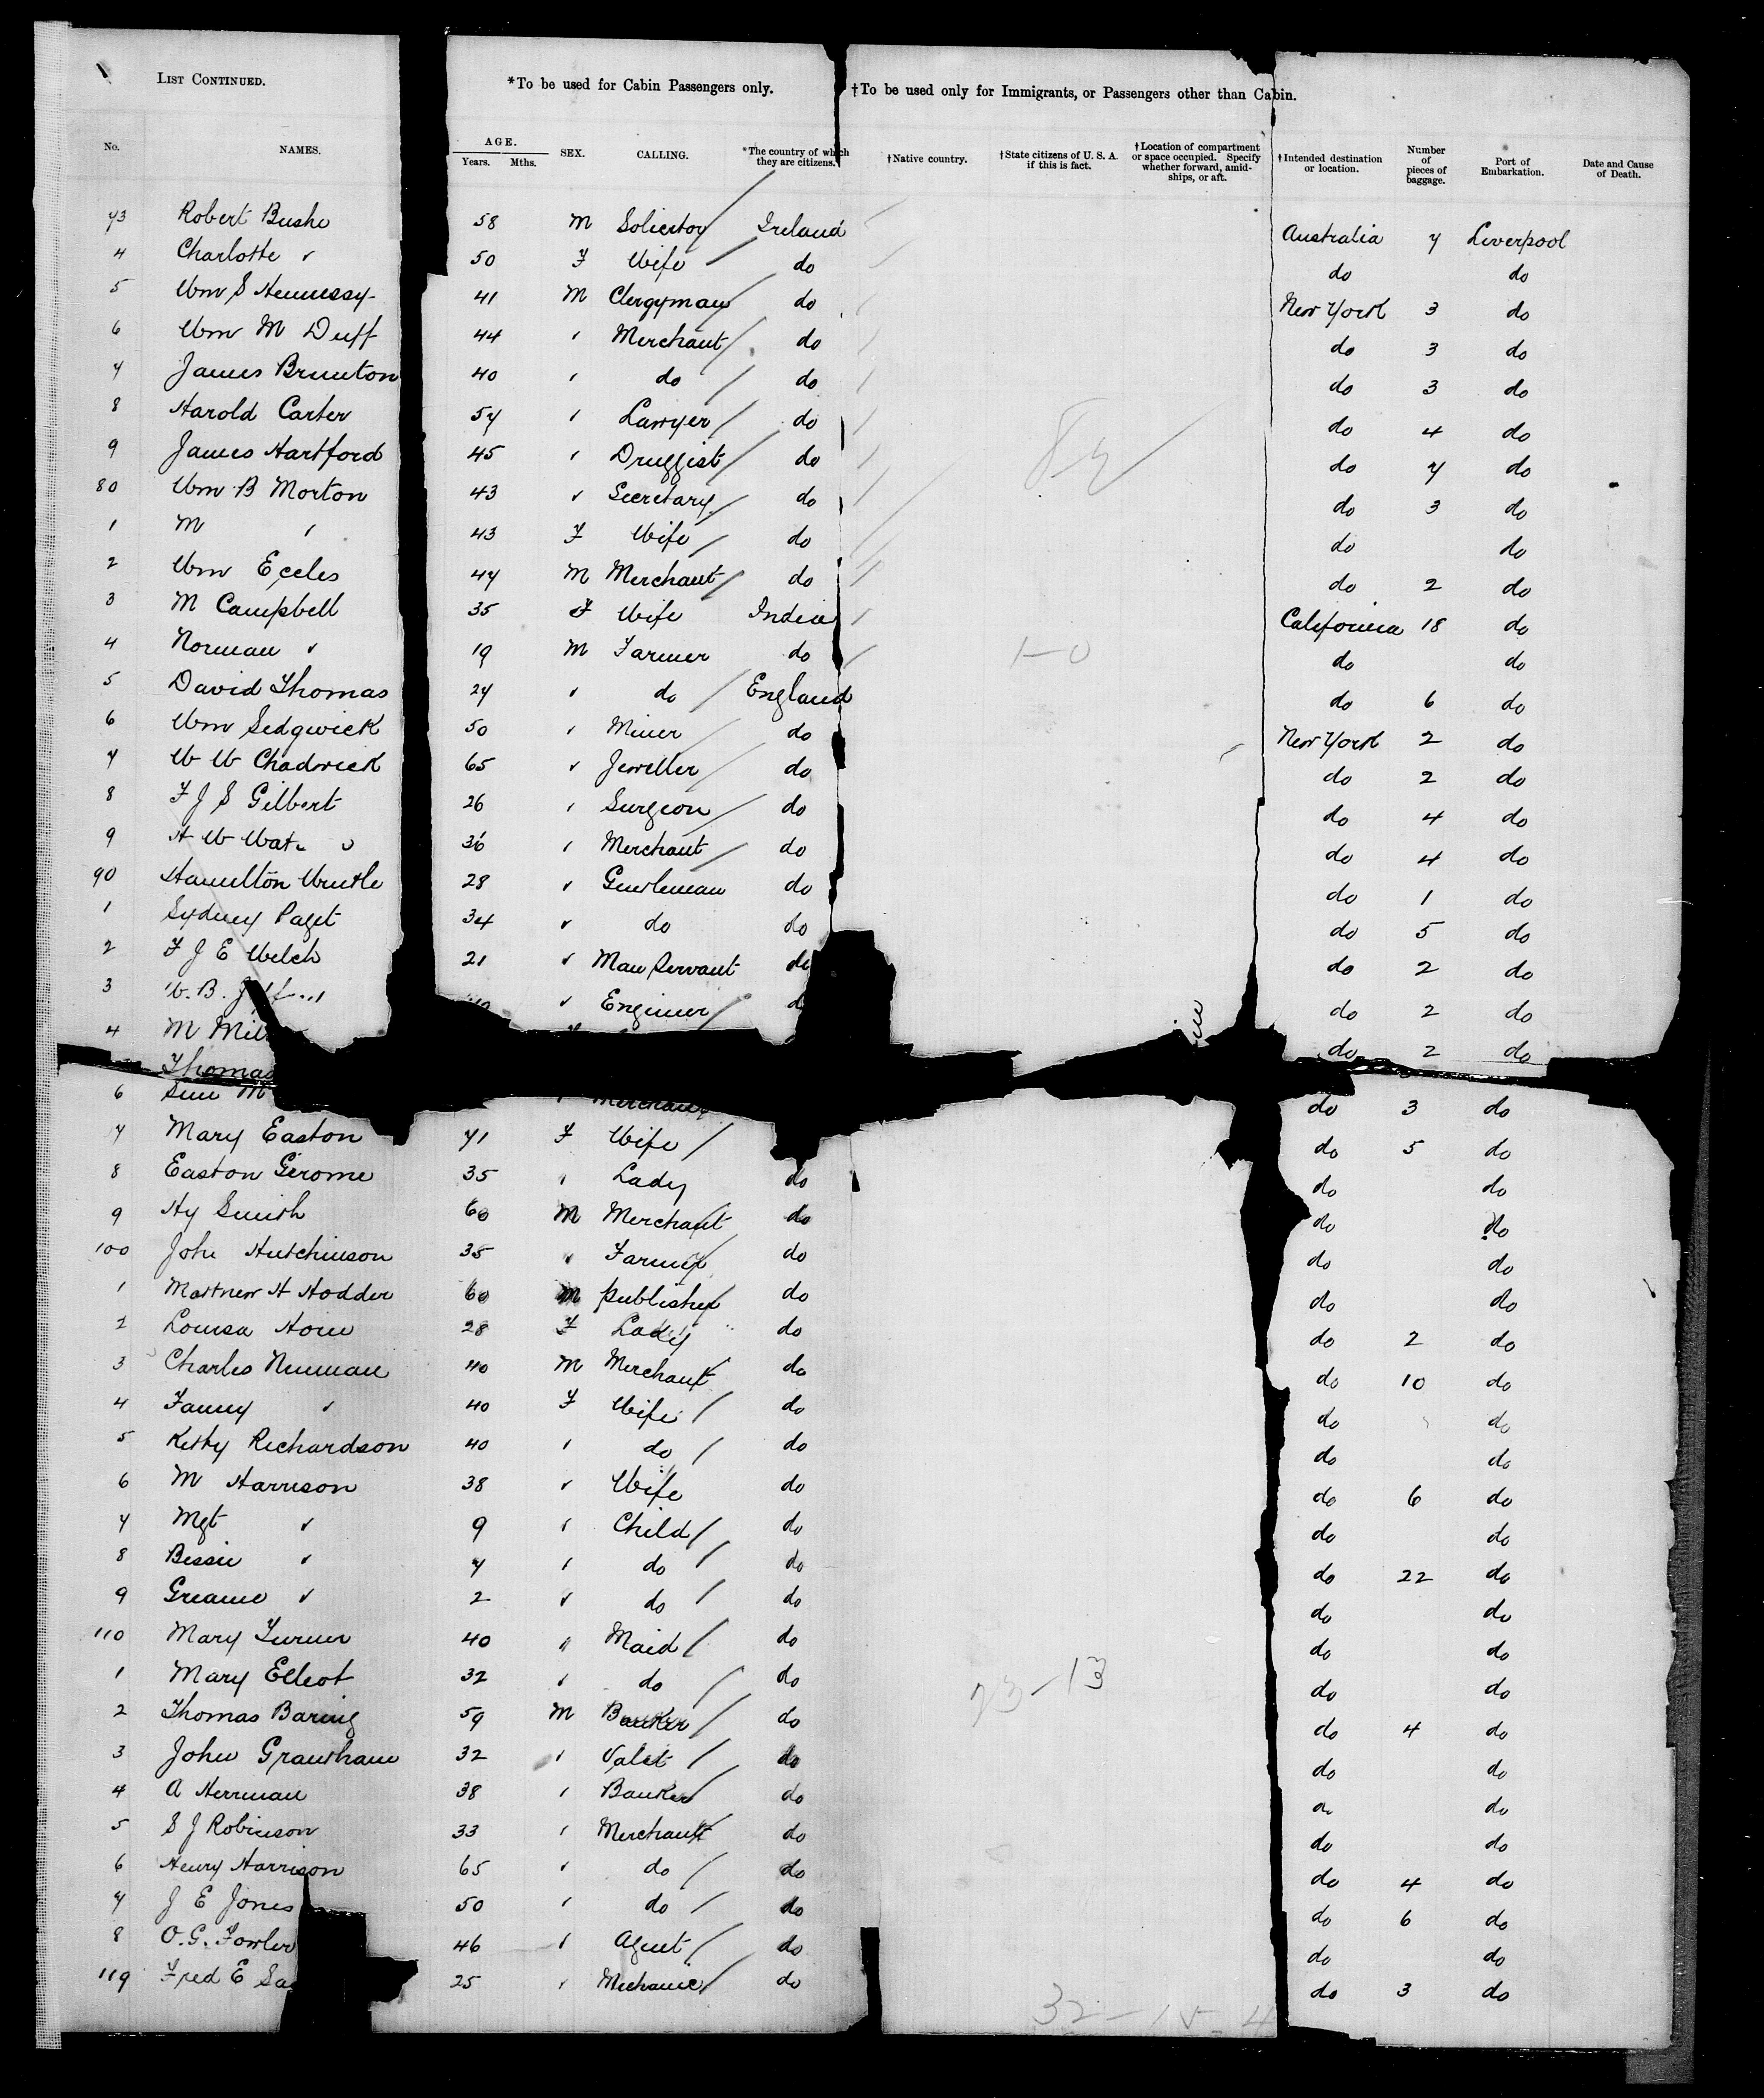 LIST CONTINUED. *To be used for Cabin Passengers only. †To be used only for Immigrants, or Passengers other than Cabin.
No. NAMES. AGE. Years. Mths. SEX. CALLING. *The country of which they are citizens. †Native country. †State citizens of U. S. A. if this is fact. †Location of compartment or space occupied. Specify whether forward, amidships, or aft. †Intended destination or location. Number of pieces of baggage. Port of Embarkation. Date and Cause of Death.
73 Robert Bushe 58 M Solicitor Ireland Australia 7 Liverpool
4 Charlotte " 50 F Wife do do do
5 Wm S Hennessy 41 M Clergyman do New York 3 do
6 Wm M Duff 44 " Merchant do do 3 do
7 James Brunton 40 " do do do 3 do
8 Harold Carter 57 " Lawyer do do 4 do
9 James Hartford 45 " Druggist do do 7 do
80 Wm B Morton 43 " Secretary do do 3 do
1 M " 43 F Wife do do do
2 Wm Eccles 47 M Merchant do do 2 do
3 M Campbell 35 F Wife India California 18 do
4 Norman " 19 M Farmer do do do
5 David Thomas 27 " do England do 6 do
6 Wm Sedgwick 50 " Miner do New York 2 do
7 W W Chadwick 65 " Jeweller do do 2 do
8 F J S Gilbert 26 " Surgeon do do 4 do
9 H W 36 " Merchant do do 4 do
90 Hamilton 28 " Gentleman do do 1 do
1 Sydney Paget 34 " do do do 5 do
2 F J E Welch 21 " Man Servant do do 2 do
3 W. B. " Engineer do 2 do
4 M do 2 do
Thomas
6 M " Merchant do 3 do
7 Mary Easton 71 F Wife do 5 do
8 Easton Gerome 35 " Lady do do do
9 Hy Smith 60 M Merchant do do do
100 John Hutchinson 35 " Farmer do do do
1 Matthew H Hodder 60 M publisher do do do
2 Louisa Horn 28 F Lady do do 2 do
3 Charles Neuman 40 M Merchant do do 10 do
4 Fanny " 40 F Wife do do do
5 Kethy Richardson 40 " do do do do
6 M Harrison 38 " Wife do do 6 do
7 Mgt " 9 " Child do do do
8 Bessie " 7 " do do do 22 do
9 Greame " 2 " do do do do
110 Mary Turner 40 " Maid do do do
1 Mary Elleot 32 " do do do do
2 Thomas Baring 59 M Banker do do 4 do
3 John Grantham 32 " Valet do do do
4 A Herrman 38 " Banker do do do
5 S J Robinson 33 " Merchant do do do
6 Henry Harrison 65 " do do do 4 do
7 J E Jones 50 " do do do 6 do
8 O. G. Fowler 46 " Agent do do do
119 Fred E 25 " Mechanic do do 3 do
1-0
23-13
32-15-4